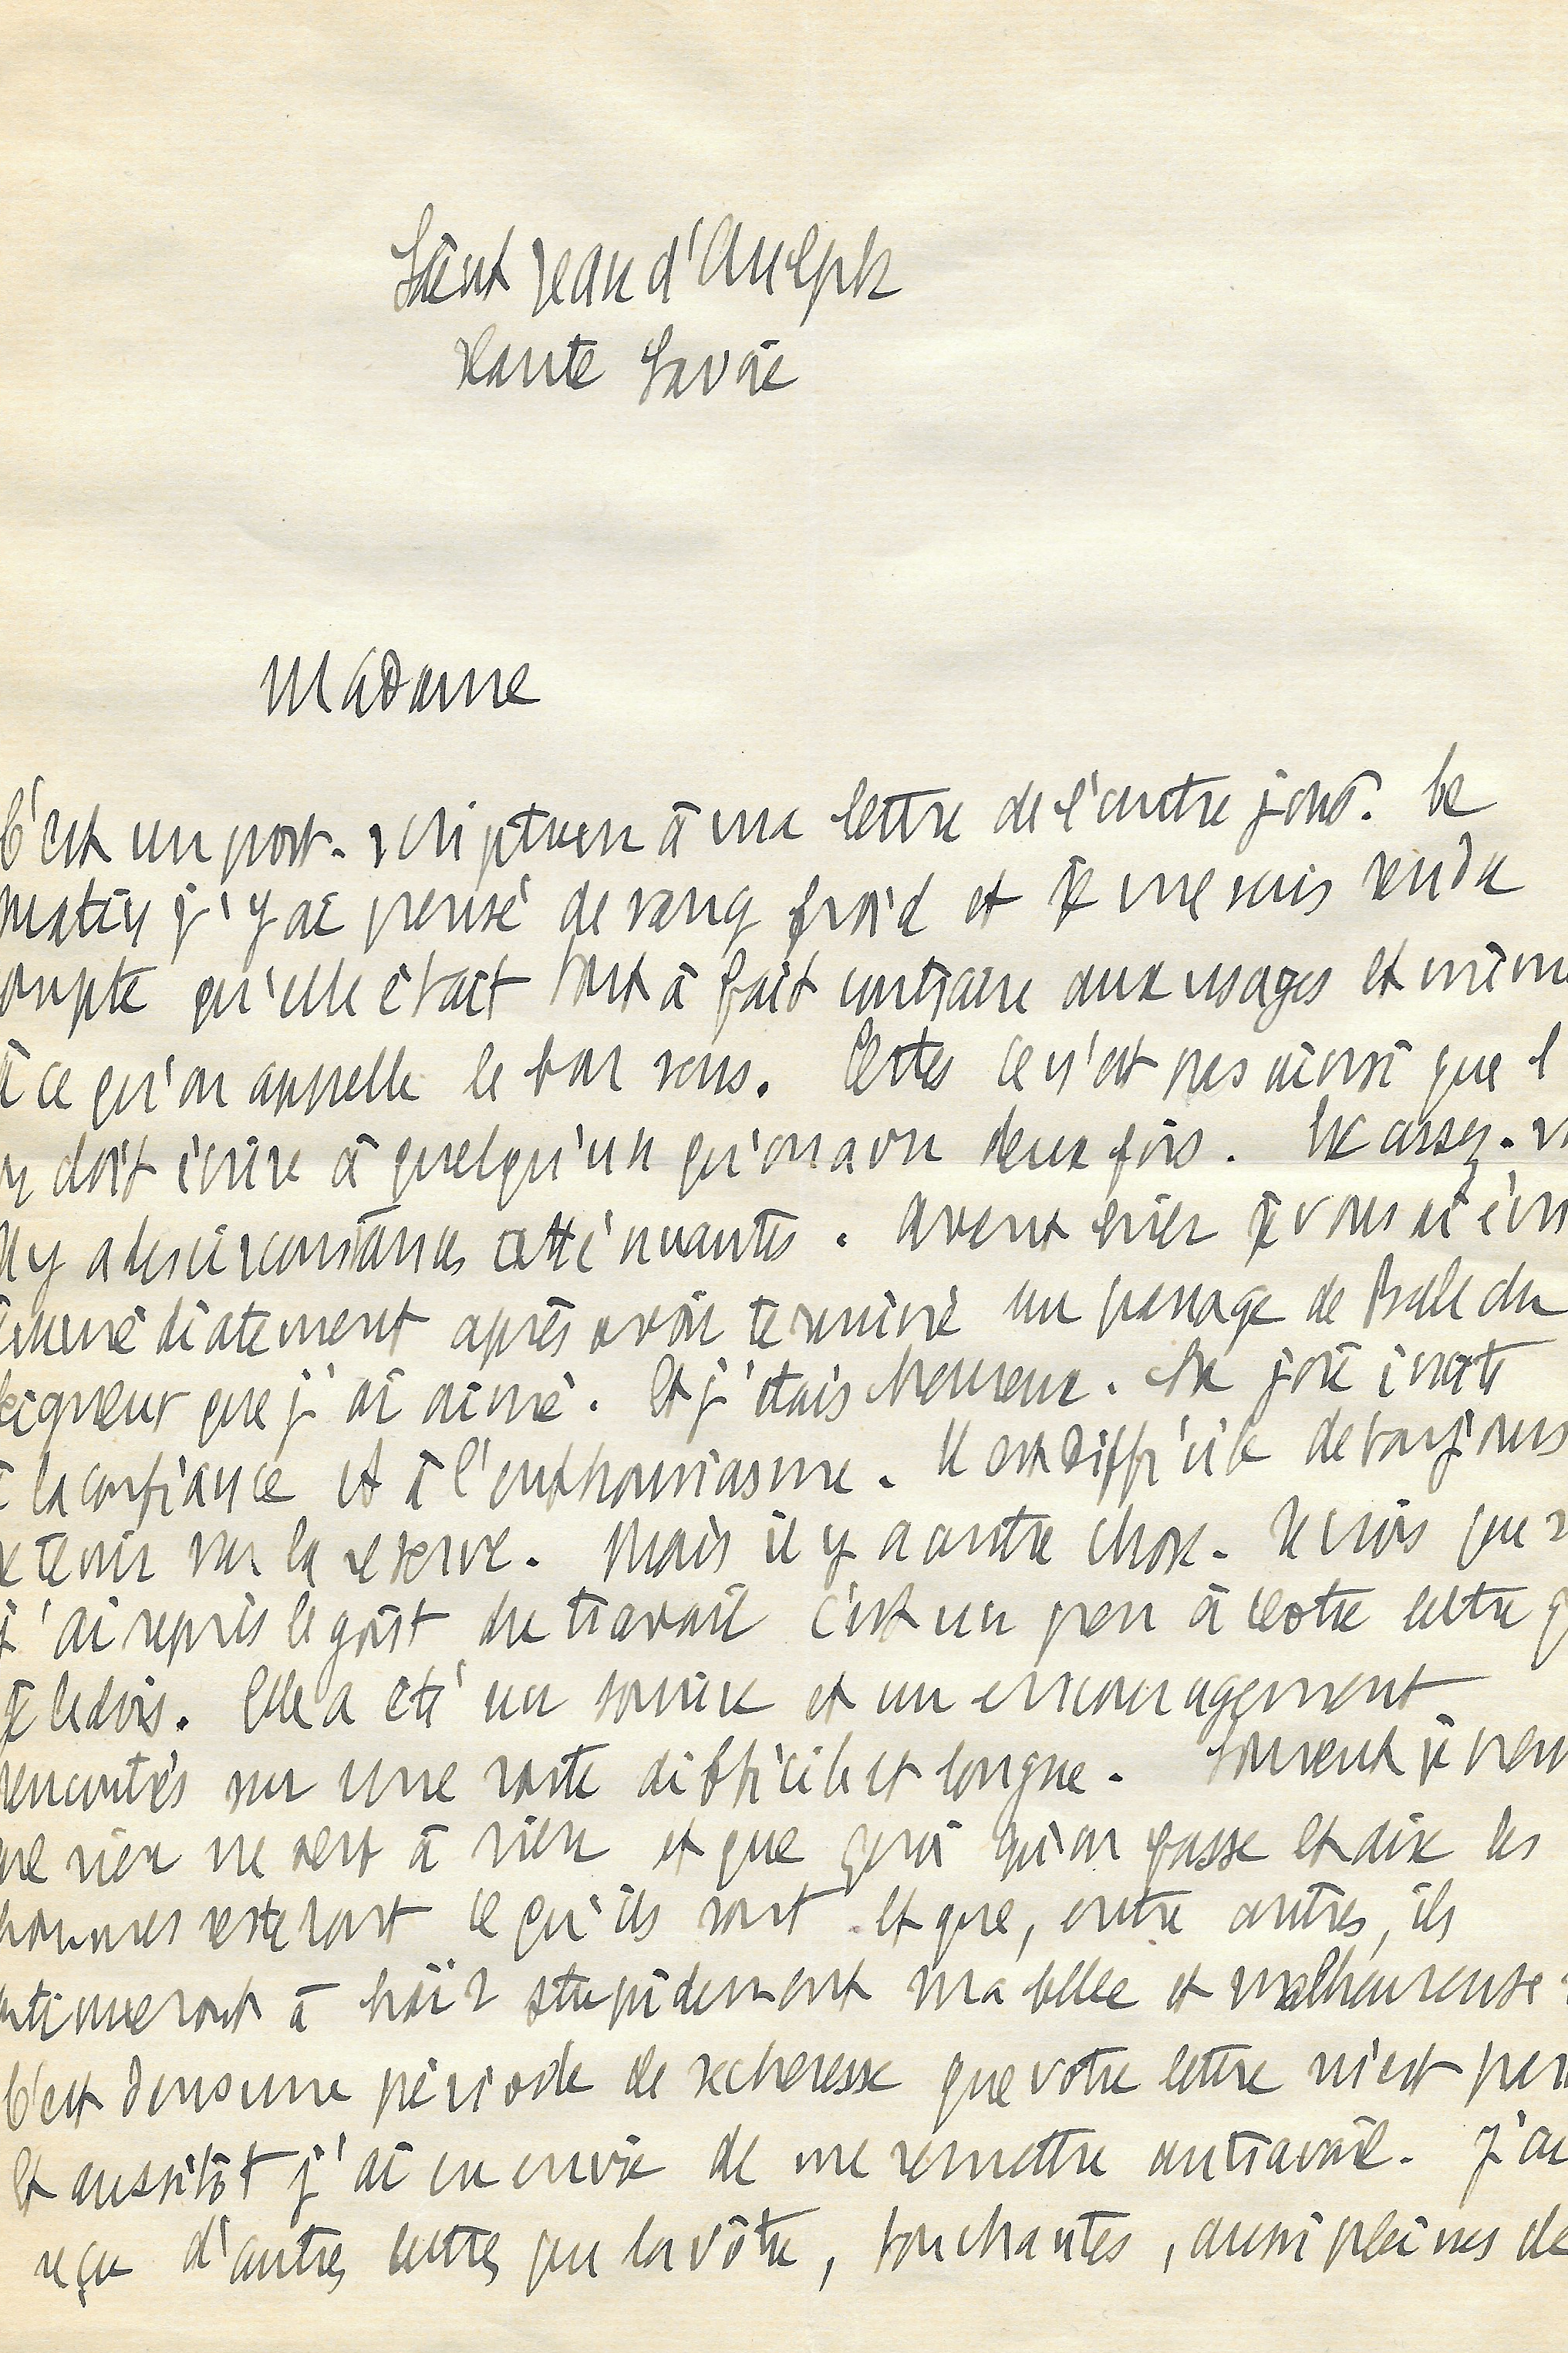 Saint Jean d'Aulph
Haute Savoie
Madame
C'est un post-scriptum à ma lettre de l'autre jour. Ce
matin j'y ai pensé de sang froid et je me suis rendu
ompte qu'elle était tout à fait contraire aux usages et mêm
à ce qu'on appelle le bon sens. Certes ce n'est pas ainsi que l
on doit écrire à quelqu'un qu'on a vu deux fois.
Il y a des circonstances atténuantes. Avant hier je vous ai écri
immédiatement après avoir terminé un passage de Belle du
Seigneur que j'ai aimé. Et j'étais heureux. La joie invite
à la confiance et à l'enthousiasme. Il est difficile de toujours
se tenir sur la réserve. Mais il y a autre chose. Je crois que s
j'ai repris le goût du travail c'est un peu à votre lettre q
je le dois. Elle a été un sourire et un encouragement
rencontrés sur une route difficile et longue. Souvent je pen
ue rien ne sert à rien et que quoi qu'on fasse et dise les
hommes resteront ce qu'ils sont et que, entre autres, ils
ontinueront à haïr stupidement ma belle et malheureuse
C'est dans une période de sécheresse que votre lettre m'est par
Et aussitôt j'ai eu envie de me remettre au travail. J'ai
reçu d'autres lettres que la vôtre, touchantes, aussi pleines de